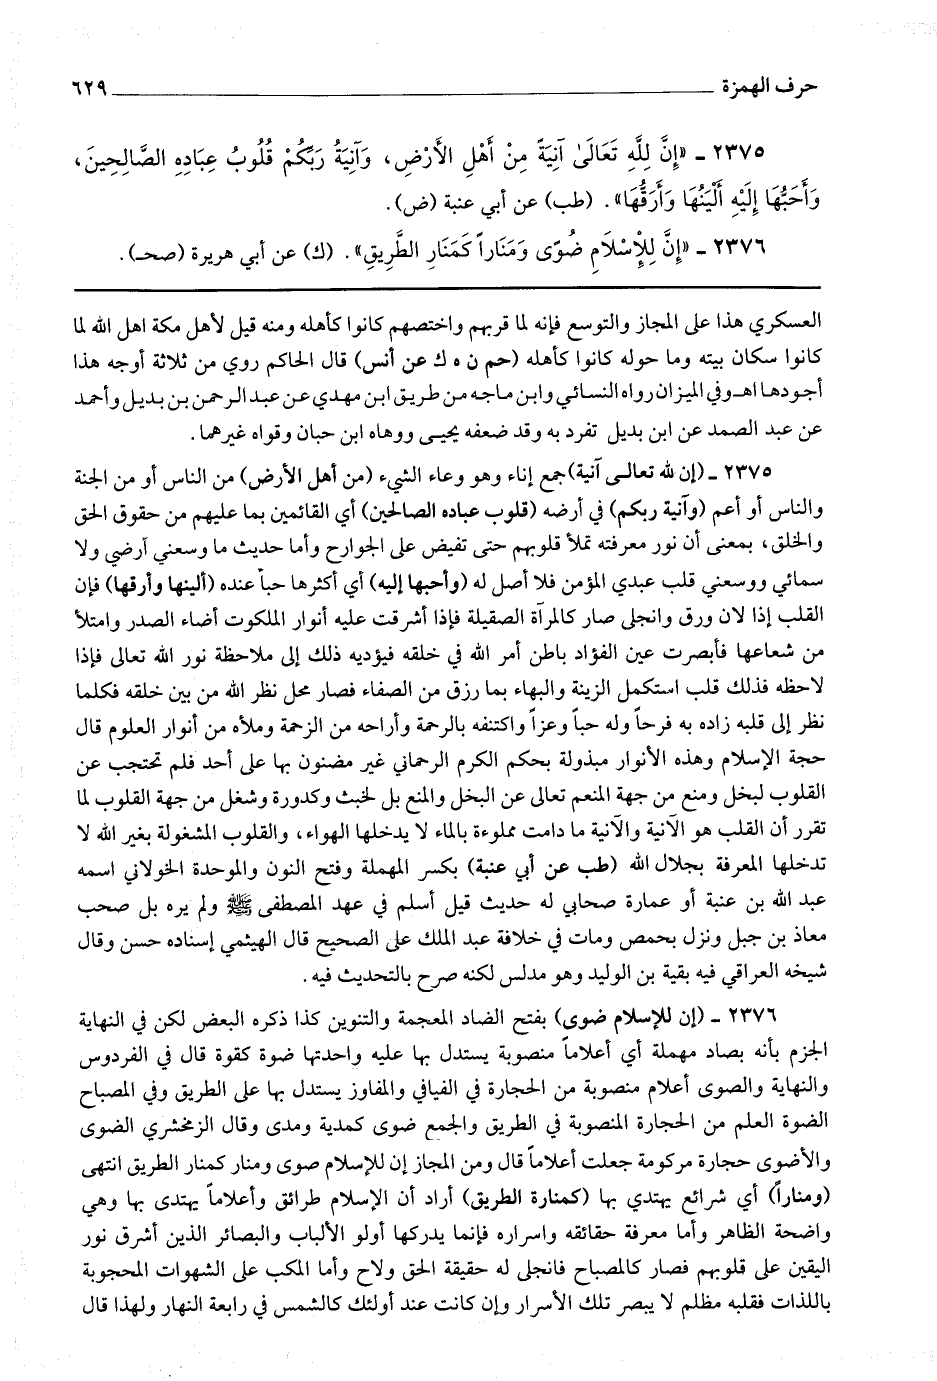 حرف الهمزة ــــــــــــــــــــ ٦٢٩
٢٣٧٥ ـ «إِنَّ لِلَّهِ تَعَالَىٰ آنِيَةً مِنْ أَهْلِ الأَرْضِ، وَآنِيَةُ رَبِّكُمْ قُلُوبُ عِبَادِهِ الصَّالِحِينَ،
وَأَحَبُّهَا إِلَيْهِ أَلْيَنُهَا وَأَرَقُّهَا». (طب) عن أبي عنبة (ض).
٢٣٧٦ ـ «إِنَّ لِلْإِسْلَامِ ضُوًى وَمَنَاراً كَمَنَارِ الطَّرِيقِ». (ك) عن أبي هريرة (صحـ).
العسكري هذا على المجاز والتوسع فإنه لما قربهم واختصهم كانوا كأهله ومنه قيل لأهل مكة اهل الله لما
كانوا سكان بيته وما حوله كانوا كأهله (حم ن ه ك عن أنس) قال الحاكم روي من ثلاثة أوجه هذا
أجودها اهـ وفي الميزان رواه النسائي وابن ماجه من طريق ابن مهدي عن عبد الرحمن بن بديل وأحمد
عن عبد الصمد عن ابن بديل تفرد به وقد ضعفه يحيـى ووهاه ابن حبان وقواه غيرهما.
٢٣٧٥ ـ (إن لله تعالـى آنية) جمع إناء وهو وعاء الشيء (من أهل الأرض) من الناس أو من الجنة
والناس أو أعم (وآنية ربكم) في أرضه (قلوب عباده الصالحين) أي القائمين بما عليهم من حقوق الحق
والخلق، بمعنى أن نور معرفته تملأ قلوبهم حتى تفيض على الجوارح وأما حديث ما وسعني أرضي ولا
سمائي ووسعني قلب عبدي المؤمن فلا أصل له (وأحبها إليه) أي أكثرها حباً عنده (ألينها وأرقها) فإن
القلب إذا لان ورق وانجلى صار كالمرآة الصقيلة فإذا أشرقت عليه أنوار الملكوت أضاء الصدر وامتلأ
من شعاعها فأبصرت عين الفؤاد باطن أمر الله في خلقه فيؤديه ذلك إلى ملاحظة نور الله تعالى فإذا
لاحظه فذلك قلب استكمل الزينة والبهاء بما رزق من الصفاء فصار محل نظر الله من بين خلقه فكلما
نظر إلى قلبه زاده به فرحاً وله حباً وعزاً واكتنفه بالرحمة وأراحه من الزحمة وملأه من أنوار العلوم قال
حجة الإسلام وهذه الأنوار مبذولة بحكم الكرم الرحماني غير مضنون بها على أحد فلم تحتجب عن
القلوب لبخل ومنع من جهة المنعم تعالى عن البخل والمنع بل لخبث وكدورة وشغل من جهة القلوب لما
تقرر أن القلب هو الآنية والآنية ما دامت مملوءة بالماء لا يدخلها الهواء، والقلوب المشغولة بغير الله لا
تدخلها المعرفة بجلال الله (طب عن أبي عنبة) بكسر المهملة وفتح النون والموحدة الخولاني اسمه
عبد الله بن عنبة أو عمارة صحابي له حديث قيل أسلم في عهد المصطفى ﷺ ولم يره بل صحب
معاذ بن جبل ونزل بحمص ومات في خلافة عبد الملك على الصحيح قال الهيثمي إسناده حسن وقال
شيخه العراقي فيه بقية بن الوليد وهو مدلس لكنه صرح بالتحديث فيه.
٢٣٧٦ ـ (إن للإسلام ضوى) بفتح الضاد المعجمة والتنوين كذا ذكره البعض لكن في النهاية
الجزم بأنه بصاد مهملة أي أعلاماً منصوبة يستدل بها عليه واحدتها ضوة كقوة قال في الفردوس
والنهاية والصوى أعلام منصوبة من الحجارة في الفيافي والمفاوز يستدل بها على الطريق وفي المصباح
الضوة العلم من الحجارة المنصوبة في الطريق والجمع ضوى كمدية ومدى وقال الزمخشري الضوى
والأضوى حجارة مركومة جعلت أعلاماً قال ومن المجاز إن للإسلام صوى ومنار كمنار الطريق انتهى
(ومناراً) أي شرائع يهتدي بها (كمنارة الطريق) أراد أن الإسلام طرائق وأعلاماً يهتدى بها وهي
واضحة الظاهر وأما معرفة حقائقه واسراره فإنما يدركها أولو الألباب والبصائر الذين أشرق نور
اليقين على قلوبهم فصار كالمصباح فانجلى له حقيقة الحق ولاح وأما المكب على الشهوات المحجوبة
باللذات فقلبه مظلم لا يبصر تلك الأسرار وإن كانت عند أولئك كالشمس في رابعة النهار ولهذا قال